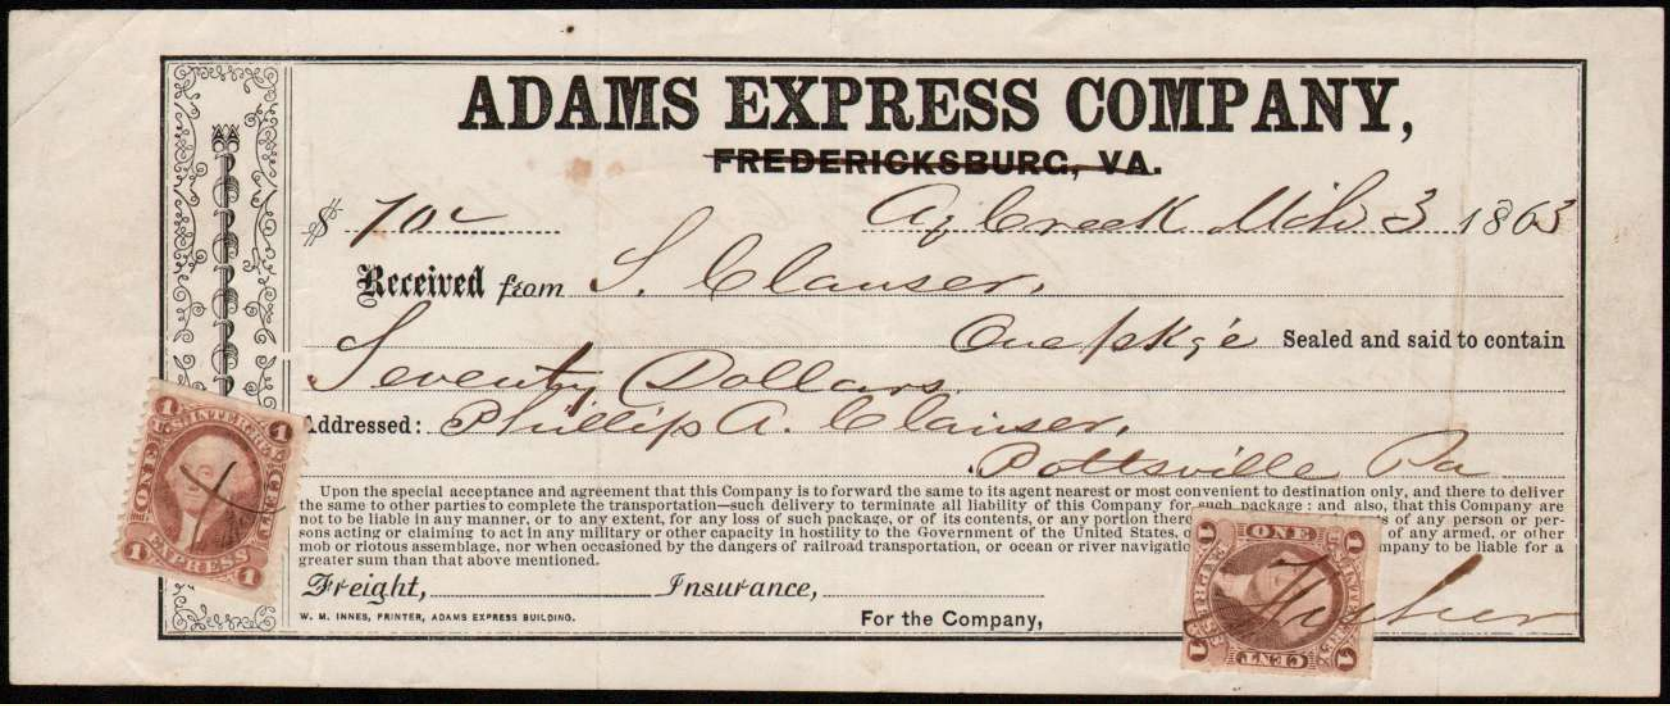 ADAMS EXPRESS COMPANY,
FREDERICKSBURG, VA.
$ 70 Aq. Creek Mch 3 1863
Received from S. Clauser,
One pkge Sealed and said to contain
Seventy Dollars
Addressed: Phillip A. Clauser,
Pottsville Pa
Upon the special acceptance and agreement that this Company is to forward the same to its agent nearest or most convenient to destination only, and there to deliver
the same to other parties to complete the transportation—such delivery to terminate all liability of this Company for such package: and also, that this Company are
not to be liable in any manner, or to any extent, for any loss of such package, or of its contents, or any portion of any person or per-
sons acting or claiming to act in any military or other capacity in hostility to the Government of the United States, of any armed, or other
mob or riotous assemblage, nor when occasioned by the dangers of railroad transportation, or ocean or river to be liable for a
greater sum than that above mentioned.
Freight, Insurance,
W. M. INNES, PRINTER, ADAMS EXPRESS BUILDING.
For the Company,
1 U.S. INTER. REV. 1
ONE CENT
1 EXPRESS 1
1 ONE 1
U.S. INTER. REV.
1 CENT 1